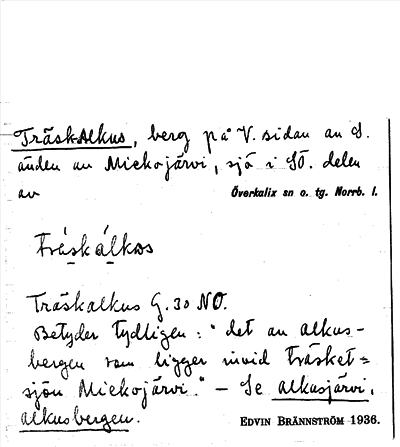 Träsk-Alkus, berg på V. sidan av S.
änden av Miekojärvi, sjö i SÖ. delen
av Överkalix sn o. tg. Norrb. l.
träskálkos
Träskalkus G. 30 NO.
Betyder tydligen: "det av alkus-
bergen som ligger invid träsket =
sjön Miekojärvi." – Se alkusjärvi,
alkusbergen. EDVIN BRÄNNSTRÖM 1936.